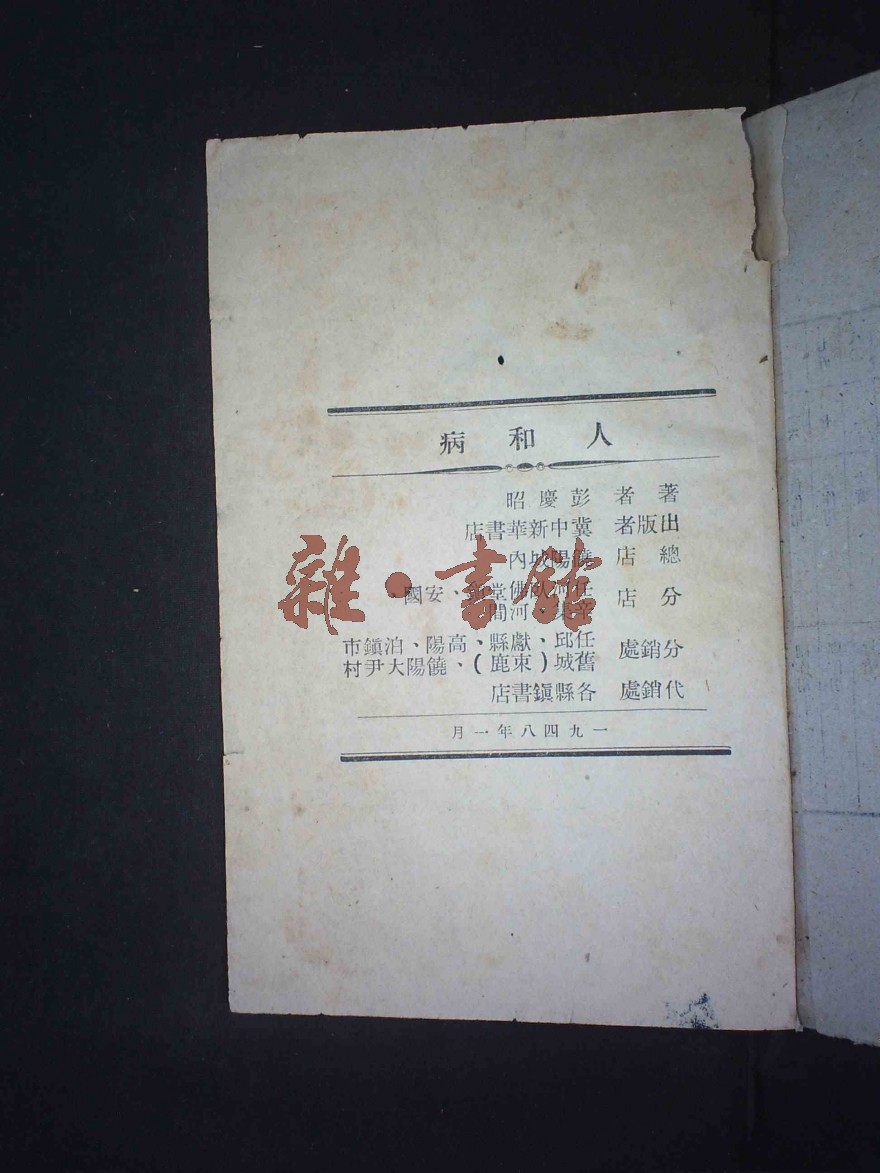 人和病
著者 彭慶昭
出版者 冀中新華書店
總店 饒陽城內
分店 任河臥佛堂、安國、
辛集、河間
分銷處 任邱、獻縣、高陽、泊鎮市
舊城(束鹿)、饒陽大尹村
代銷處 各縣鎮書店
一九四八年一月
雜·書館